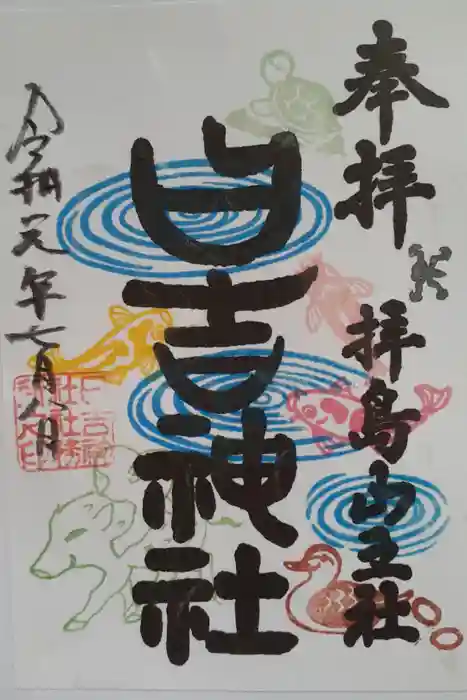 奉拝
拝島山王社
日吉神社
令和元年七月八日